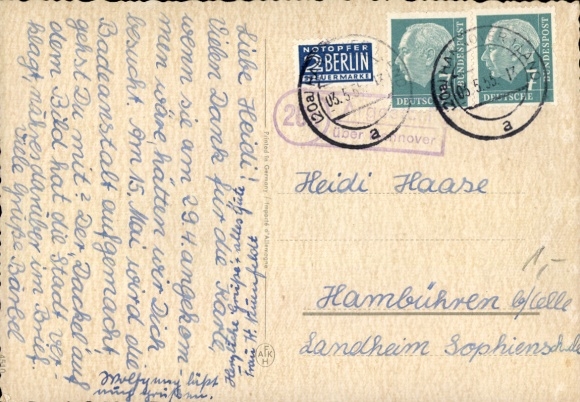 Liebe Heidi!
Vielen Dank für die Karte,
wenn sie am 29.4. angekom
men wäre, hätten wir Dich
besucht. Am 15. Mai wird die
Badeanstalt aufgemacht
gehst Du mit? Der Dackel auf
dem Bild hat die Stadt ver
klagt, näheres darüber im Brief.
Viele Grüße Bärbel
Wolfgang läßt
auch grüßen.
Printed in Germany / Imprimé d'Allemagne
NOTOPFER
2 BERLIN
STEUERMARKE
DEUTSCHE BUNDESPOST
DEUTSCHE BUNDESPOST
(20a)
03.5.
17
a
(20a)
03.5.
17
a
über Hannover
Heidi Haase
1,-
Hambühren b/Celle
Landheim Sophienschule